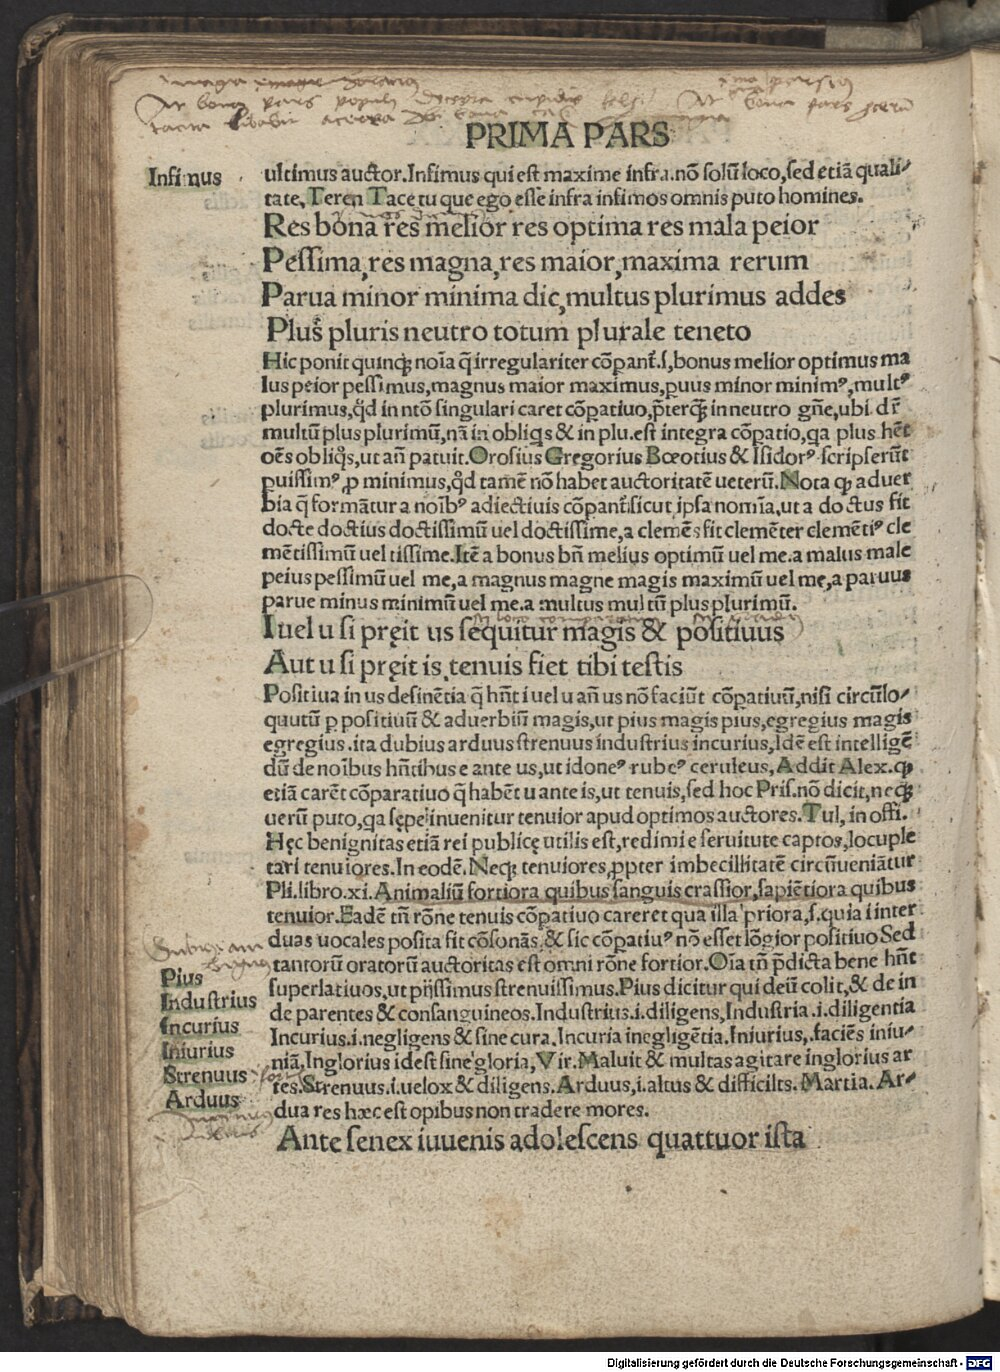 At bona pars populi decepta cupidine falso
PRIMA PARS
Infimus
ultimus auctor.Infimus qui est maxime infra.nõ solũ loco,sed etiã quali-
tate,Teren Tace tu que ego esse infra infimos omnis puto homines.
Res bona res melior res optima res mala peior
Pessima,res magna,res maior,maxima rerum
Parua minor minima dic,multus plurimus addes
Plus pluris neutro totum plurale teneto
Hic ponit quinqꝫ noĩa q̃ irregulariter cõpant̃.s,bonus melior optimus ma
lus peior pessimus,magnus maior maximus,ꝑuus minor minimꝰ,multꝰ
plurimus,qd̃ in ntõ singulari caret cõpatiuo,p̃terqꝫ in neutro gñe,ubi dr̃
multũ plus plurimũ,nã in obliqs & in plu.est integra cõpatio,qa plus hẽt
oẽs obliqs,ut añ patuit.Orosius Gregorius Bœotius & Isidorꝰ scripserũt
puissimꝰ,p minimus,qd̃ tamẽ nõ habet auctoritatẽ ueterũ.Nota ꝙ aduer
bia q̃ formãtur a noĩbꝰ adiectiuis cõpant̃.sicut ipsa nomĩa,ut a doctus fit
docte doctius doctissimũ uel doctissime,a clemẽs fit clemẽter clemẽtiꝰ cle
mẽtissimũ uel tissime.Itẽ a bonus bñ melius optimũ uel me.a malus male
peius pessimũ uel me,a magnus magne magis maximũ uel me,a paruus
parue minus minimũ uel me.a multus multũ plus plurimũ.
I uel u si pręit us sequitur magis & positiuus
Aut u si pręit is tenuis fiet tibi testis
Positiua in us desinẽtia q̃ hñt i uel u añ us nõ faciũt cõpatiuũ,nisi circũlo-
quutũ p positiuũ & aduerbiũ magis,ut pius magis pius,egregius magis
egregius.ita dubius arduus strenuus industrius incurius,Idẽ est intelligẽ
dũ de noĩbus hñtibus e ante us,ut idoneꝰ rubeꝰ ceruleus,Addit Alex.ꝙ
etiã carẽt cõparatiuo q̃ habẽt u ante is,ut tenuis,sed hoc Pris.nõ dicit,neqꝫ
uerũ puto,qa sępe inuenitur tenuior apud optimos auctores.Tul,in offi.
Hęc benignitas etiã rei publicę utilis est,redimi e seruitute captos,locuple
tari tenuiores.In eodẽ.Neqꝫ tenuiores,ppter imbecillitatẽ circũueniãtur
Pli.libro.xi.Animaliũ fortiora quibus sanguis crassior,sapiẽtiora quibus
tenuior.Eadẽ tñ rõne tenuis cõpatiuo careret qua illa priora,s.quia i inter
duas uocales posita fit cõsonãs,& sic cõpatiuꝰ nõ esset lõgior positiuo Sed
tantorũ oratorũ auctoritas est omni rõne fortior.Oĩa tñ p̃dicta bene hñt
superlatiuos,ut pijssimus strenuissimus.Pius dicitur qui deũ colit,& de in
de parentes & consanguineos.Industrius.i.diligens,Industria.i.diligentia
Incurius.i.negligens & sine cura.Incuria i negligẽtia.Iniurius,.faciẽs iniu-
niã,Inglorius id est sine gloria,Vir.Maluit & multas agitare inglorius ar
tes.Strenuus.i.uelox & diligens.Arduus,i.altus & difficilis.Martia.Ar-
dua res hæc est opibus non tradere mores.
Pius
Industrius
Incurius
Iniurius
Strenuus
Arduus
Ante senex iuuenis adolescens quattuor ista
Digitalisierung gefördert durch die Deutsche Forschungsgemeinschaft - DFG